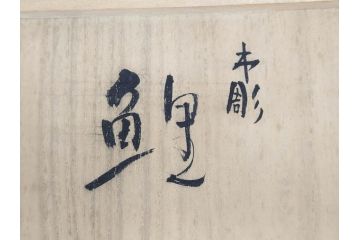 木彫
鯉